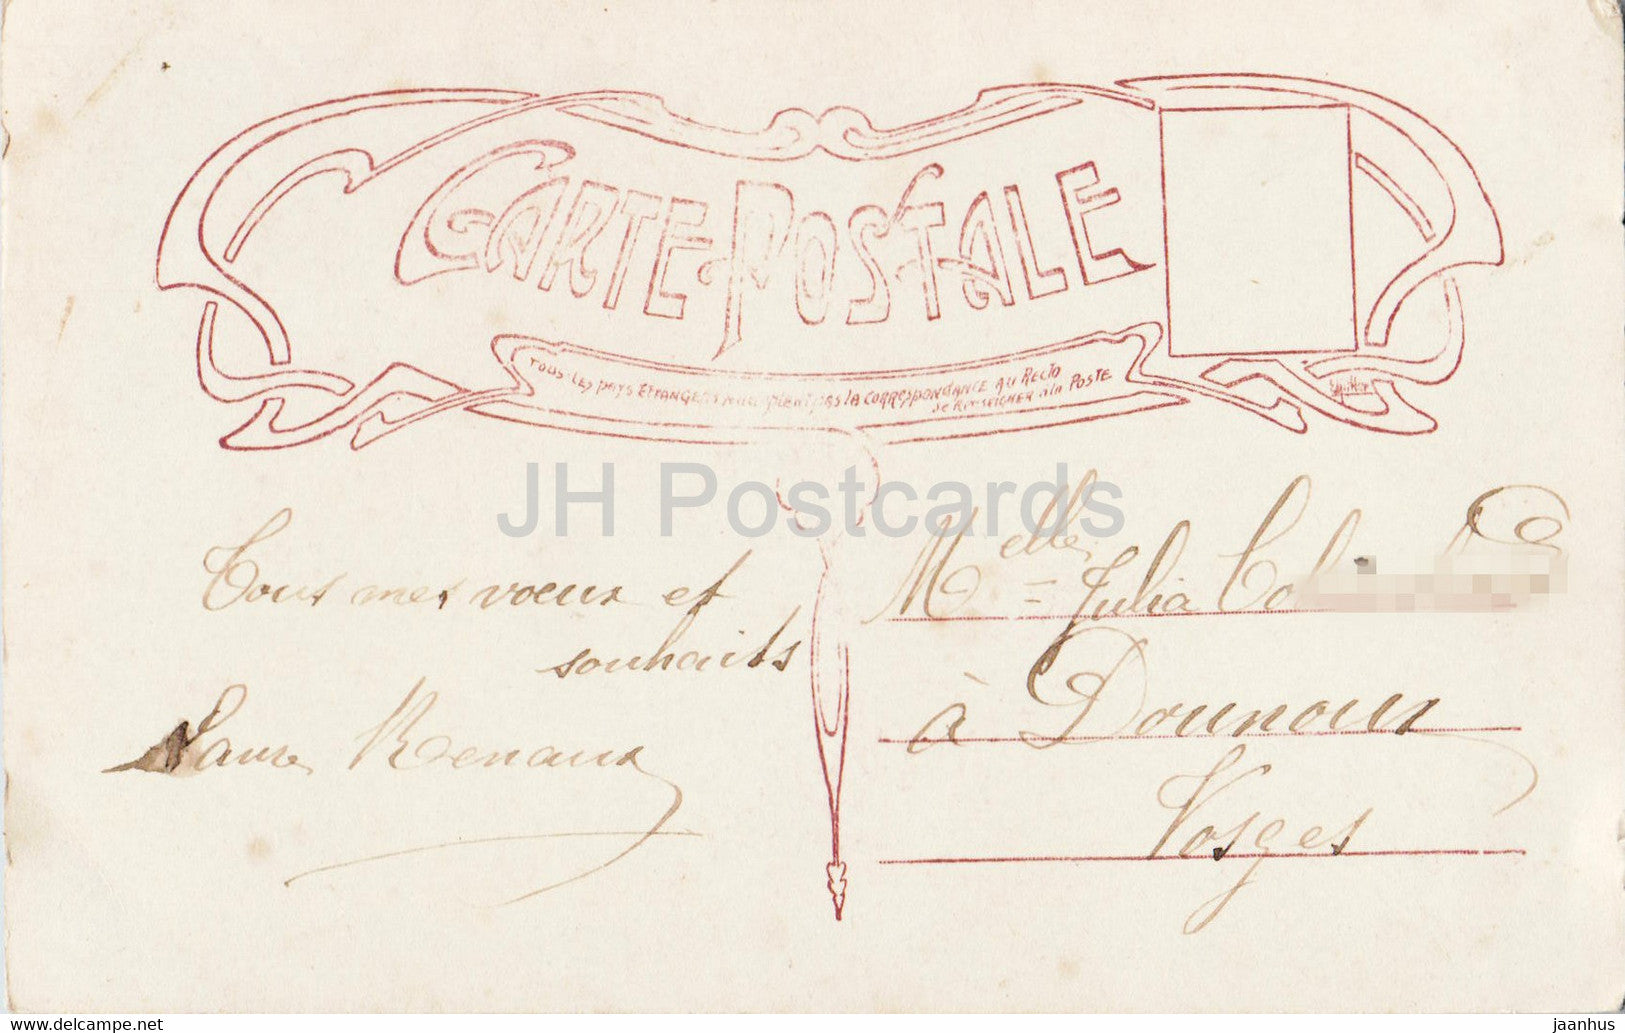 CARTE-POSTALE
TOUS LES PAYS ETRANGERS N'ACCEPTENT PAS LA CORRESPONDANCE AU RECTO
SE RENSEIGNER A LA POSTE
JH Postcards
Tous mes vœux et
souhaits
Laure Renaux
Melle Julia
à Dounoux
Vosges
www.delcampe.net
jaanhus